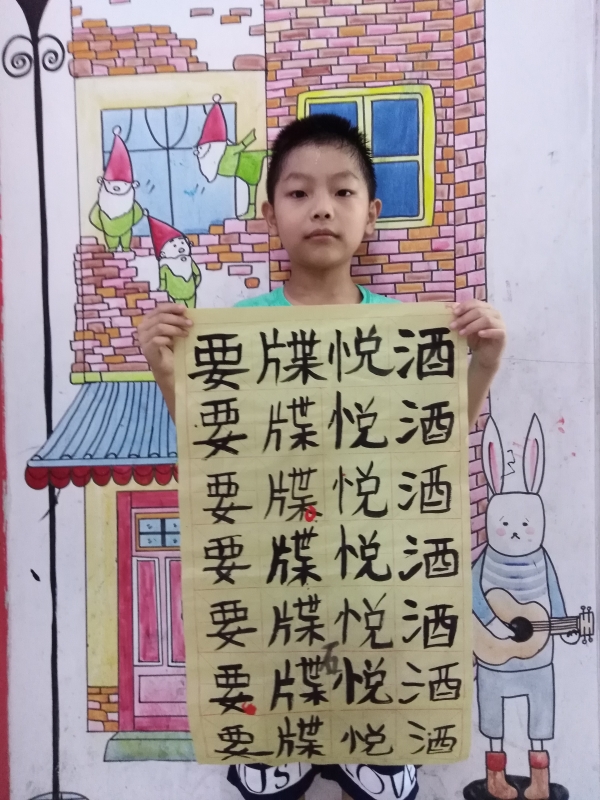 要牒悦酒
要牒悦酒
要牒悦酒
要牒悦酒
要牒悦酒
石
要牒悦酒
要牒悦酒